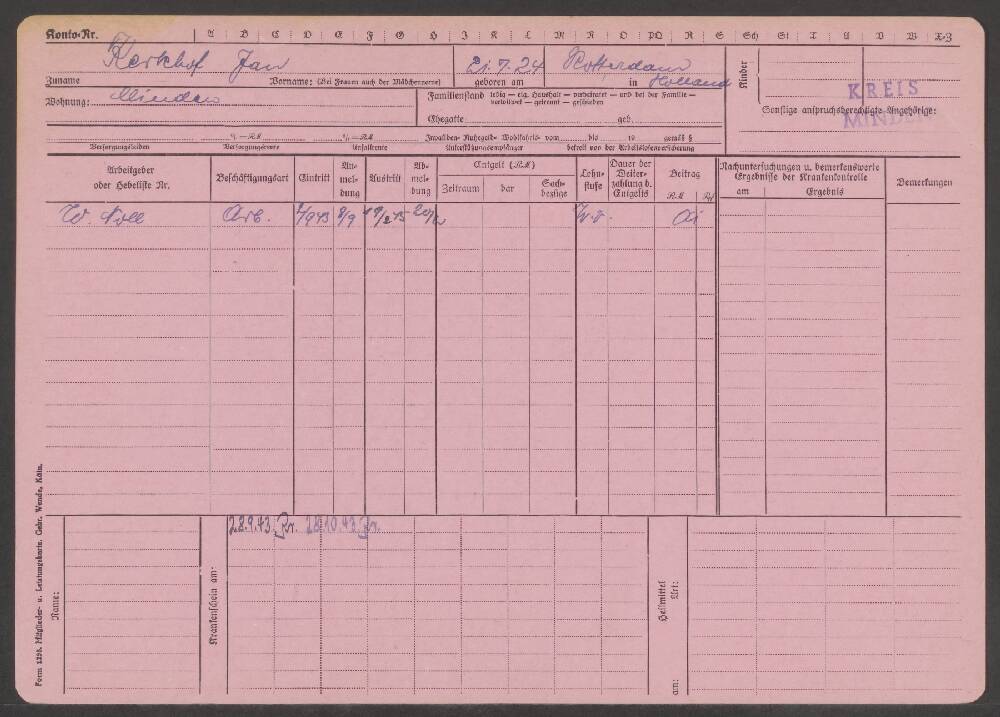 Konto-Nr. A B C D E F G H I K L M N O PQ R S Sch St T U V W X-Z
Kerkhof Jan 21.7.24 Rotterdam
Zuname Vorname: (Bei Frauen auch der Mädchenname) geboren am in Holland
Kinder
KREIS
MINDEN
Wohnung: Minden
Familienstand ledig — eig. Haushalt — verheiratet — und bei der Familie —
verwitwet — getrennt — geschieden
Sonstige anspruchsberechtigte Angehörige:
Ehegatte geb.
% — RM % — RM Invaliden- Ruhegeld- Wohlfahrts- vom bis 19 gemäß §
Versorgungsleiden Versorgungsrente Unfallrente Unterstützungsempfänger befreit von der Arbeitslosenversicherung
Arbeitgeber oder Hebeliste Nr.
Beschäftigungsart
Eintritt
An-
mel-
dung
Austritt
Ab-
mel-
dung
Entgelt (RM)
Zeitraum bar Sach-
bezüge
Lohn-
stufe
Dauer der
Weiter-
zahlung d.
Entgelts
Beitrag
RM Rpf
Nachuntersuchungen u. bemerkenswerte
Ergebnisse der Krankenkontrolle
am Ergebnis
Bemerkungen
W. Noll Arb.
28.9.43. 28.10.43
Name:
Krankenschein am:
Heilmittel
Art:
am:
Form 1295. Mitglieder- u. Leistungskarte. Gebr. Wende, Köln.